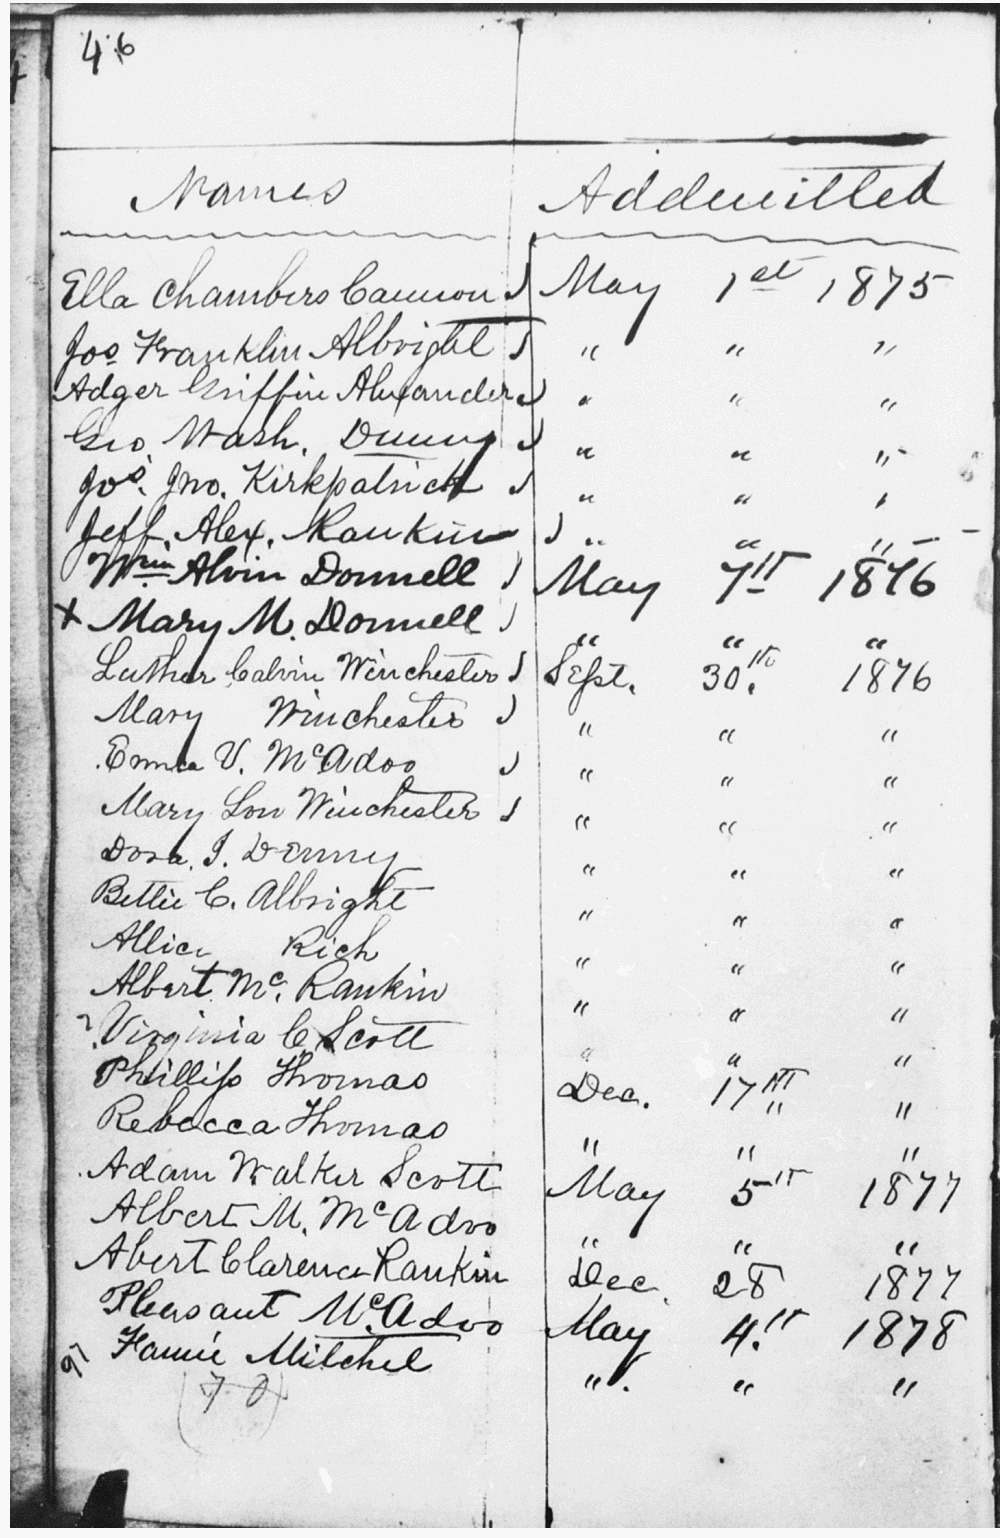 46
Names Addmitted
Ella Chambers Cannon May 1st 1875
Jos Franklin Albright " " "
Adger Griffin Alexander " " "
Geo. Wash. Denny " " "
Jos. Jno. Kirkpatrick " " "
Jeff. Alex. Rankin " " "
Wm. Alvin Donnell May 7th 1876
x Mary M. Donnell " " "
Luther Calvin Winchester Sept. 30th. 1876
Mary Winchester " " "
Emma V. McAdoo " " "
Mary Lou Winchester " " "
Dora. I. Denny " " "
Bettie C. Albright " " "
Allice Rich " " "
Albert Mc. Rankin " " "
? Virginia C Scott " " "
Phillip Thomas Dec. 17th "
Rebecca Thomas " " "
Adam Walker Scott May 5th 1877
Albert M. McAdoo " " "
Abert Clarence Rankin Dec. 28 1877
Pleasant McAdoo May 4.th 1878
97 Fannie Mitchel " " "